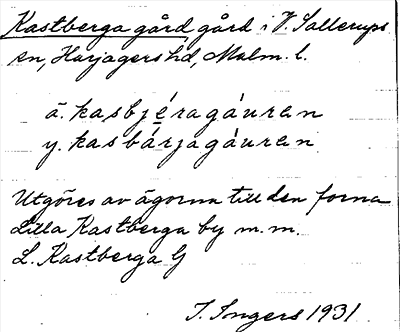 Kastberga gård, gård i V. Sallerups
sn, Harjagers hd, Malm. l.
ä. kasbjéragáuran
y. kasbárjagáuran
Utgöres av ägorna till den forna
Lilla Kastberga by m.m.
L. Kastberga G
I. Ingers 1931